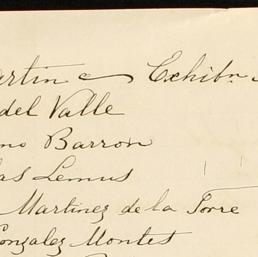 artin Exhibn
del Valle
no Barron
as Lemus
Martinez de la Torre
Gonzalez Montes